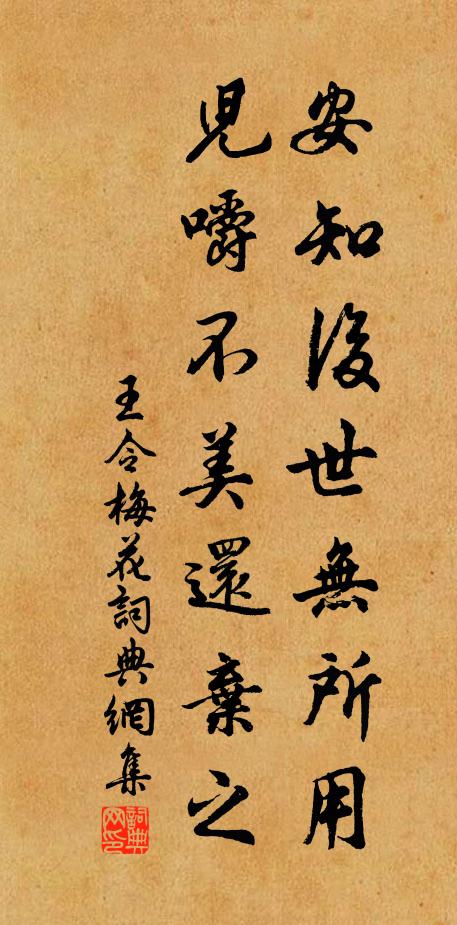 安知後世無所用
児嚼不美還棄之
王令梅花詞典網集
詞典网印